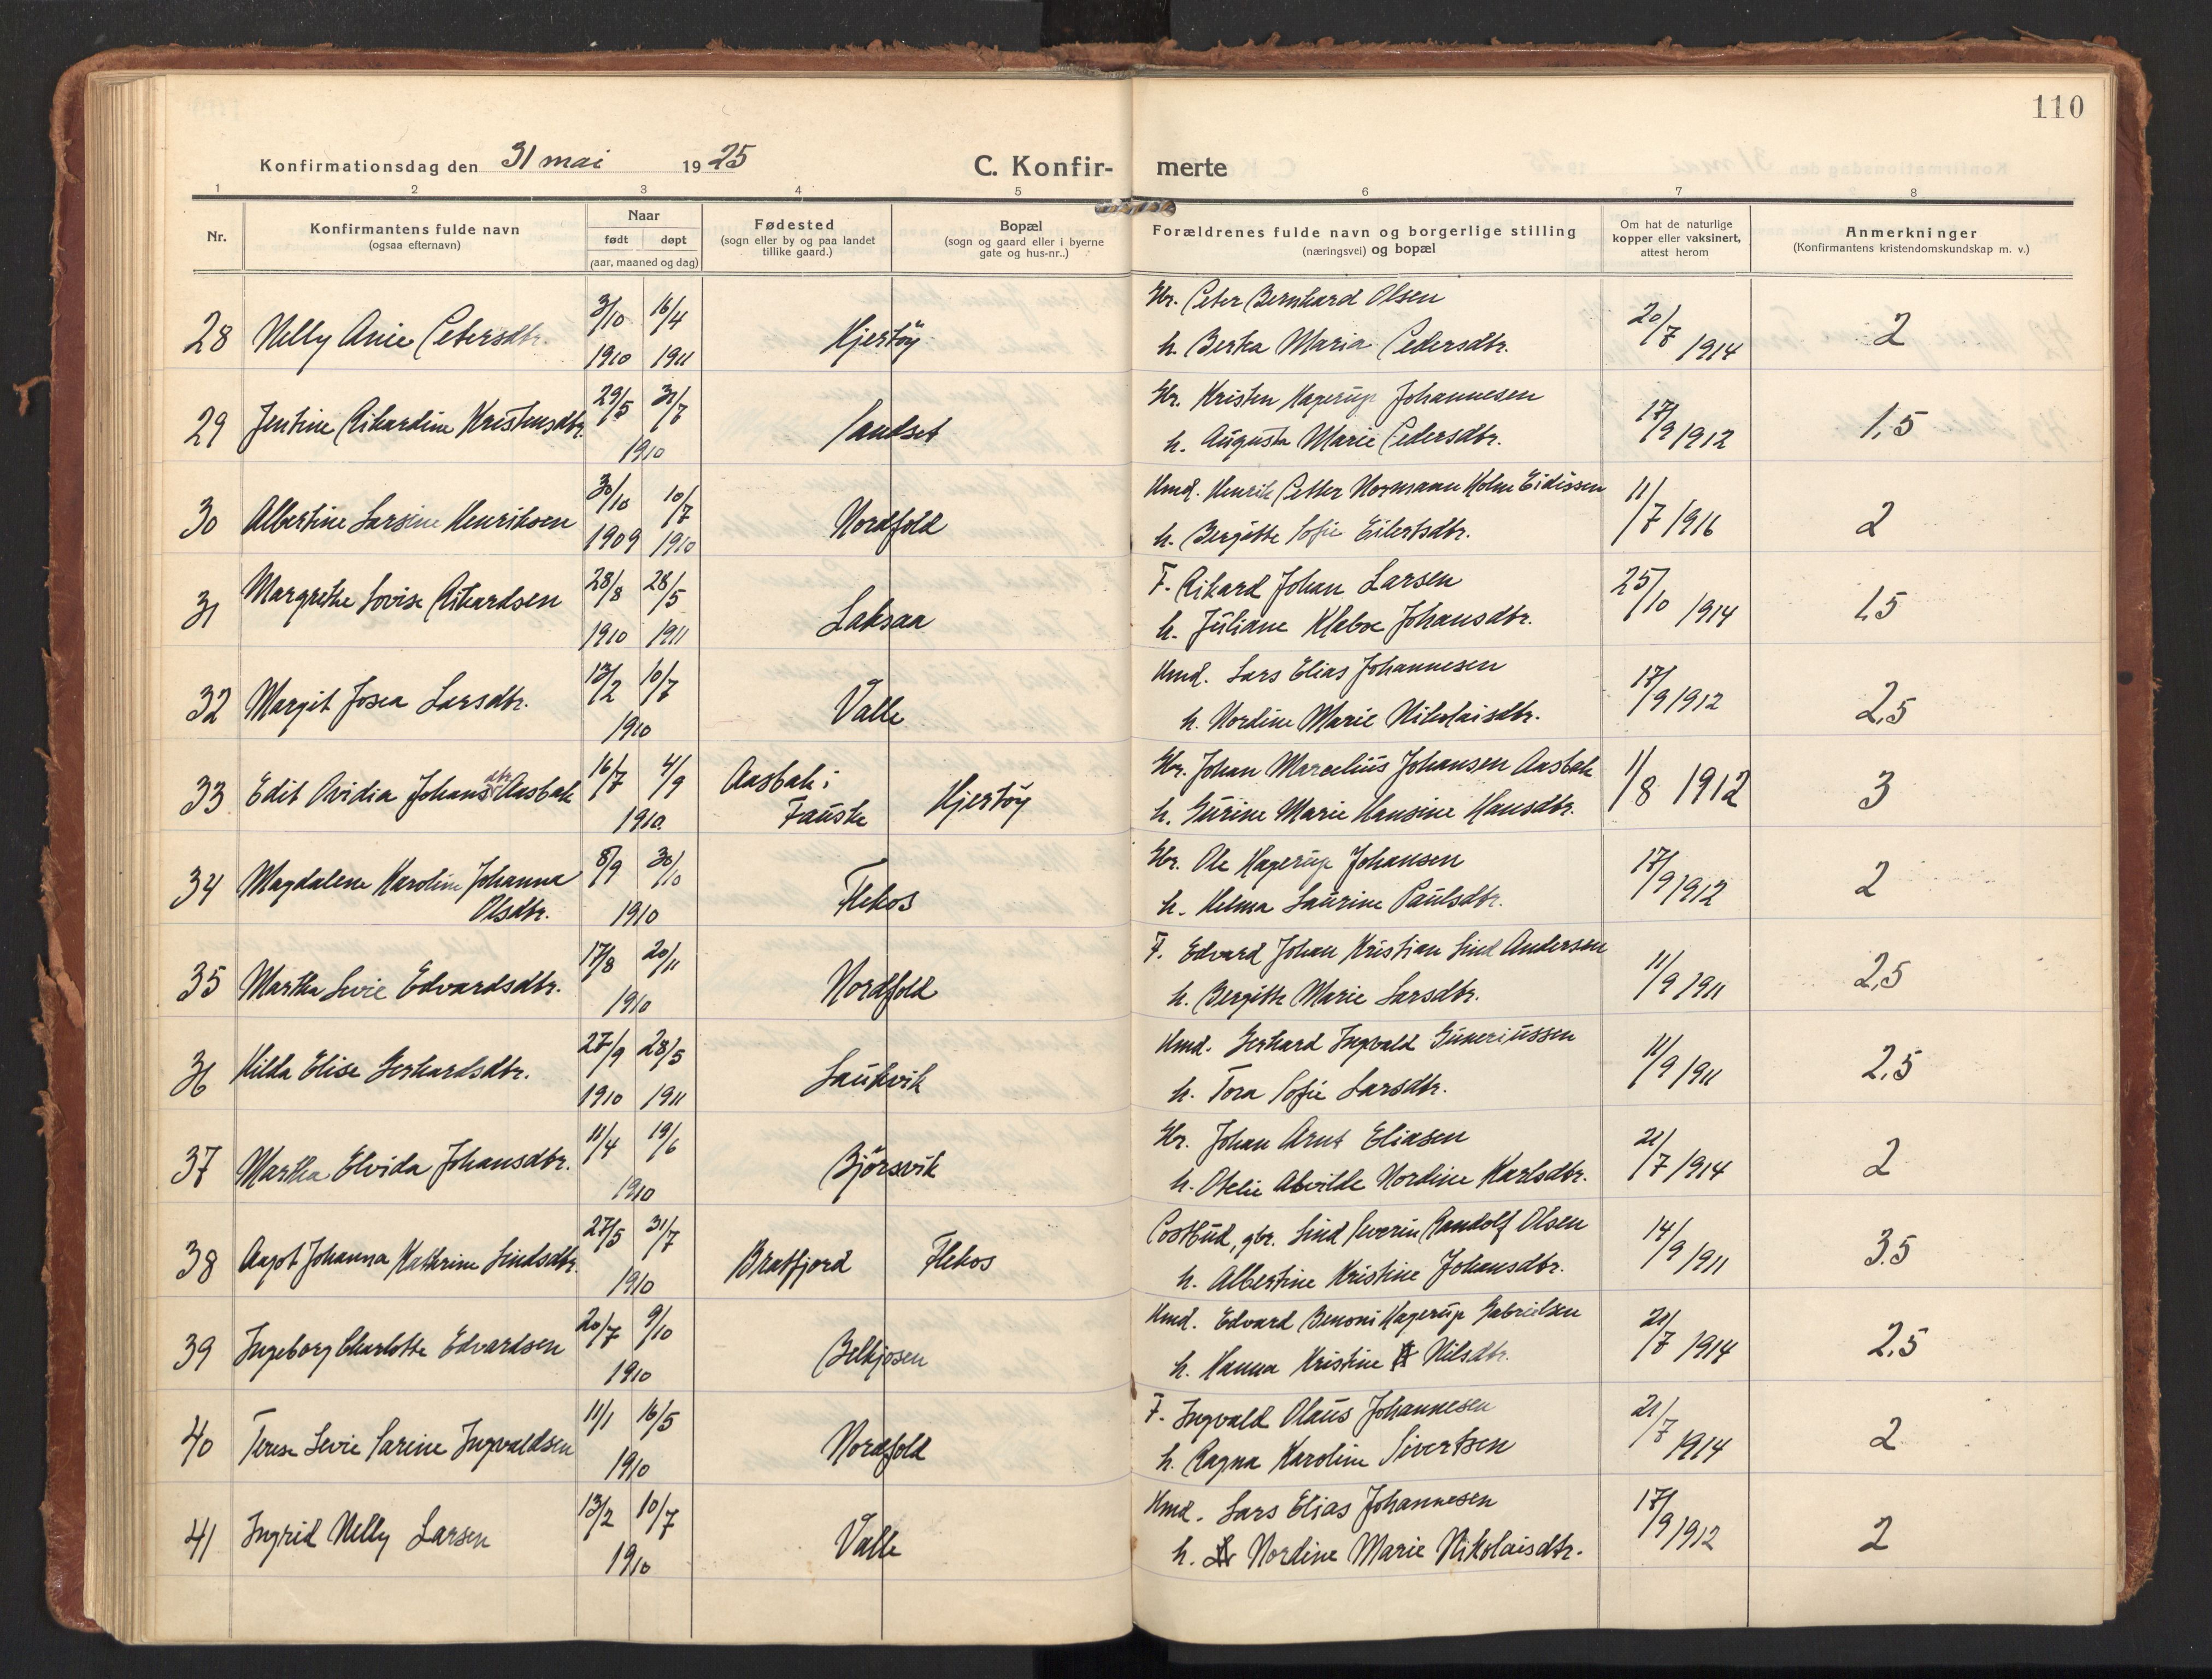 110
Konfirmationsdag den 31 mai 1925
C. Konfir- merte
1 2 3 4 5 6 7 8
Nr.
Konfirmantens fulde navn
(ogsaa efternavn)
Naar
født døpt
(aar, maaned og dag)
Fødested
(sogn eller by og paa landet
tillike gaard.)
Bopæl
(sogn og gaard eller i byerne
gate og hus-nr..)
Forældrenes fulde navn og borgerlige stilling
(næringsvei) og bopæl
Om hat de naturlige
kopper eller vaksinert,
attest herom
Anmerkninger
(Konfirmantens kristendomskundskap m. v.)
28 Nelly Anie Petersdtr. 3/10 1910 16/4 1911 Kjertøy Gbr. Peter Bernhard Olsen
h. Berka Maria Pedersdtr. 20/7 1914 2
29 Jentine Rikardine Kristensdtr. 29/5 30/7 1910 Sandset Gbr. Kristen Hagerup Johannesen
h. Augusta Marie Pedersdtr. 17/9 1912 1,5
30 Albertine Larsine Henriksen 30/10 1909 10/7 1910 Nordfold Kmd. Henrik Petter Normann Holm Eidissen
h. Bergitte Sofie Eilertsdtr. 11/7 1916 2
31 Margrethe Lovise Rikardsen 28/8 1910 28/5 1911 Laksaa F. Rikard Johan Larsen
h. Juliane Klaboe Johansdtr. 25/10 1914 1,5
32 Margit Josea Larsdtr. 13/2 10/7 1910 Valle Kmd. Lars Elias Johannesen
h. Nordine Marie Nikolaisdtr. 17/9 1912 2,5
33 Edit Ovidia Johansdtr. Aasbak 16/7 4/9 1910. Aasbak i
Fauske Kjertøy Gbr. Johan Marcelius Johansen Aasbak
h. Gurine Marie Hansine Hansdtr. 1/8 1912 3
34 Magdalene Karoline Johanna
Olsdtr. 8/9 30/10 1910 Flekos Gbr. Ole Hagerup Johansen
h. Helma Laurine Paulsdtr. 17/9 1912 2
35 Martha Levie Edvardsdtr. 17/8 20/11 1910 Nordfold F. Edvard Johan Kristian Lind Andersen
h. Bergitte Marie Larsdtr. 11/9 1911 2,5
36 Hilda Elise Gerhardsdtr. 27/9 1910 28/5 1911 Laukvik Kmd. Gerhard Ingvald Guneriussen
h. Tora Sofie Larsdtr. 11/9 1911 2,5
37 Martha Elvida Johansdtr. 11/4 19/6 1910 Bjørsvik Gbr. Johan Arnt Eliasen
h. Otelie Alvilde Nordine Karlsdtr. 21/7 1914 2
38 Aagot Johanna Kathrine Lindsdtr. 27/5 31/7 1910 Bratfjord Flekos Postbud, gbr. Lind Severin Randolf Olsen
h. Albertine Kristine Johansdtr. 14/9 1911 3.5
39 Ingeborg Charlotte Edvardsen 20/7 9/10 1910 Belkjosen Kmd. Edvard Benoni Hagerup Gabrielsen
h. Hanna Kristine Nilsdtr. 21/7 1914 2,5
40 Terese Levie Sarine Ingvaldsen 11/1 16/5 1910 Nordfold F. Ingvald Olaus Johannesen
h. Ragna Karoline Sivertsen 21/7 1914 2
41 Ingrid Nelly Larsen 13/2 10/7 1910 Valle Kmd. Lars Elias Johannesen
h. Nordine Marie Nikolaisdtr. 17/9 1912 2